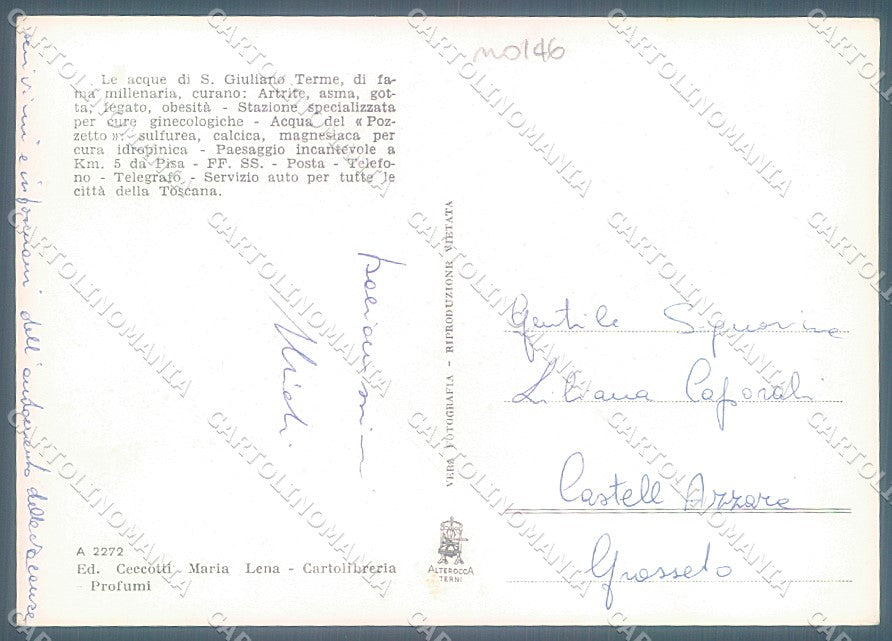 no146
Le acque di S. Giuliano Terme, di fa-
ma millenaria, curano: Artrite, asma, got-
ta, fegato, obesità - Stazione specializzata
per cure ginecologiche - Acqua del «Poz-
zetto»: sulfurea, calcica, magnesiaca per
cura idropinica - Paesaggio incantevole a
Km. 5 da Pisa - FF. SS. - Posta - Telefo-
no - Telegrafo - Servizio auto per tutte le
città della Toscana.
scrivimi e informami dell'andamento delle vacanze
bacionissimi
VERA FOTOGRAFIA - RIPRODUZIONE VIETATA
Gentile Signorina
Liliana Caporali
Castell'Azzara
Grosseto
A 2272
Ed. Ceccotti Maria Lena - Cartolibreria
Profumi
ALTEROCCA
TERNI
CARTOLINOMANIA